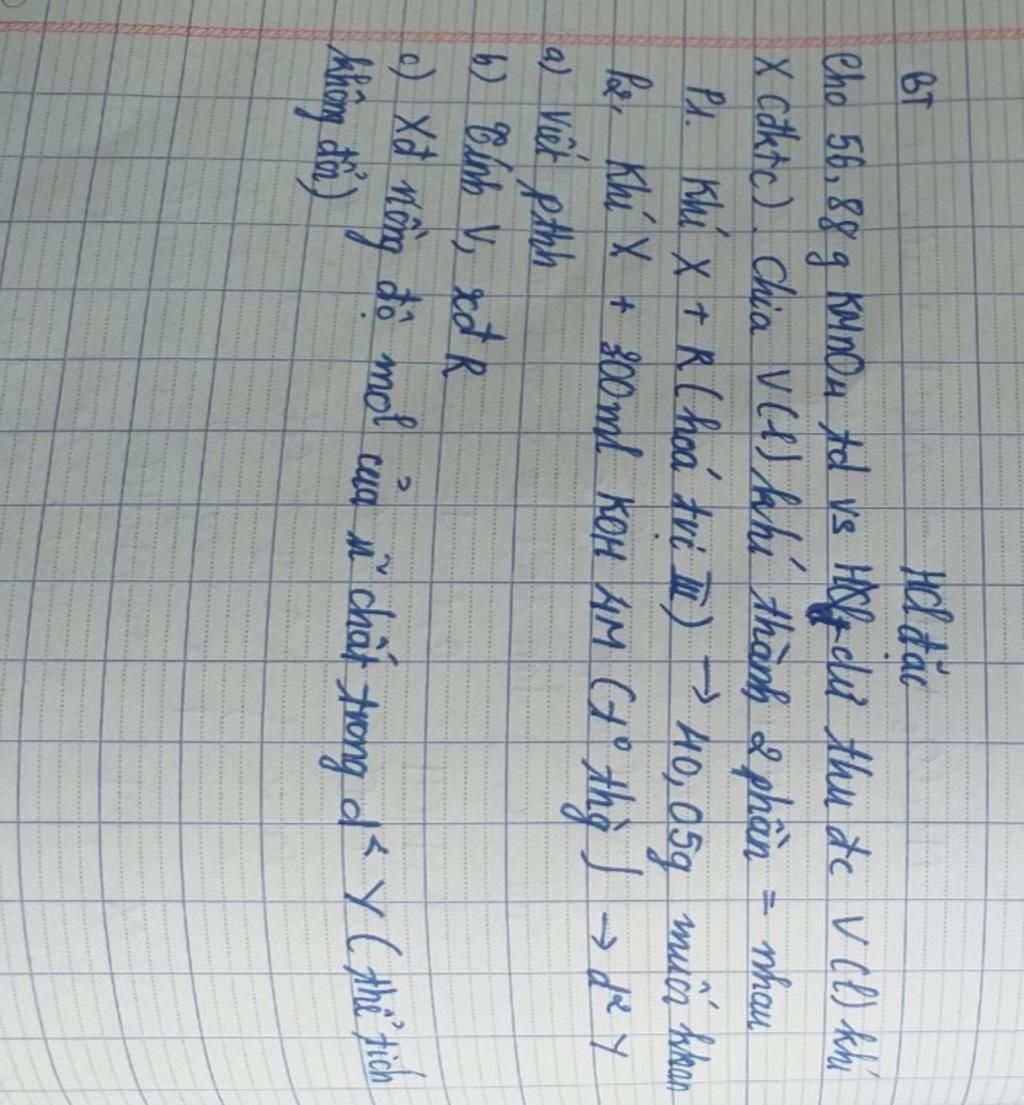 BT
HCl đặc
Cho 56,88g KMnO4 td vs dư thu đc V(l) khí
X (đktc). Chia V(l) khí thành 2 phần = nhau
P1. Khí X + R (hoá trị III) → 40,05g muối khan
P2, Khí X + 300ml KOH 4M (t° thg) → d² Y
a) Viết pthh
b) Tính V, xđ R
c) Xđ nồng độ mol của ~ chất trong d² Y (thể tích
không đổi)